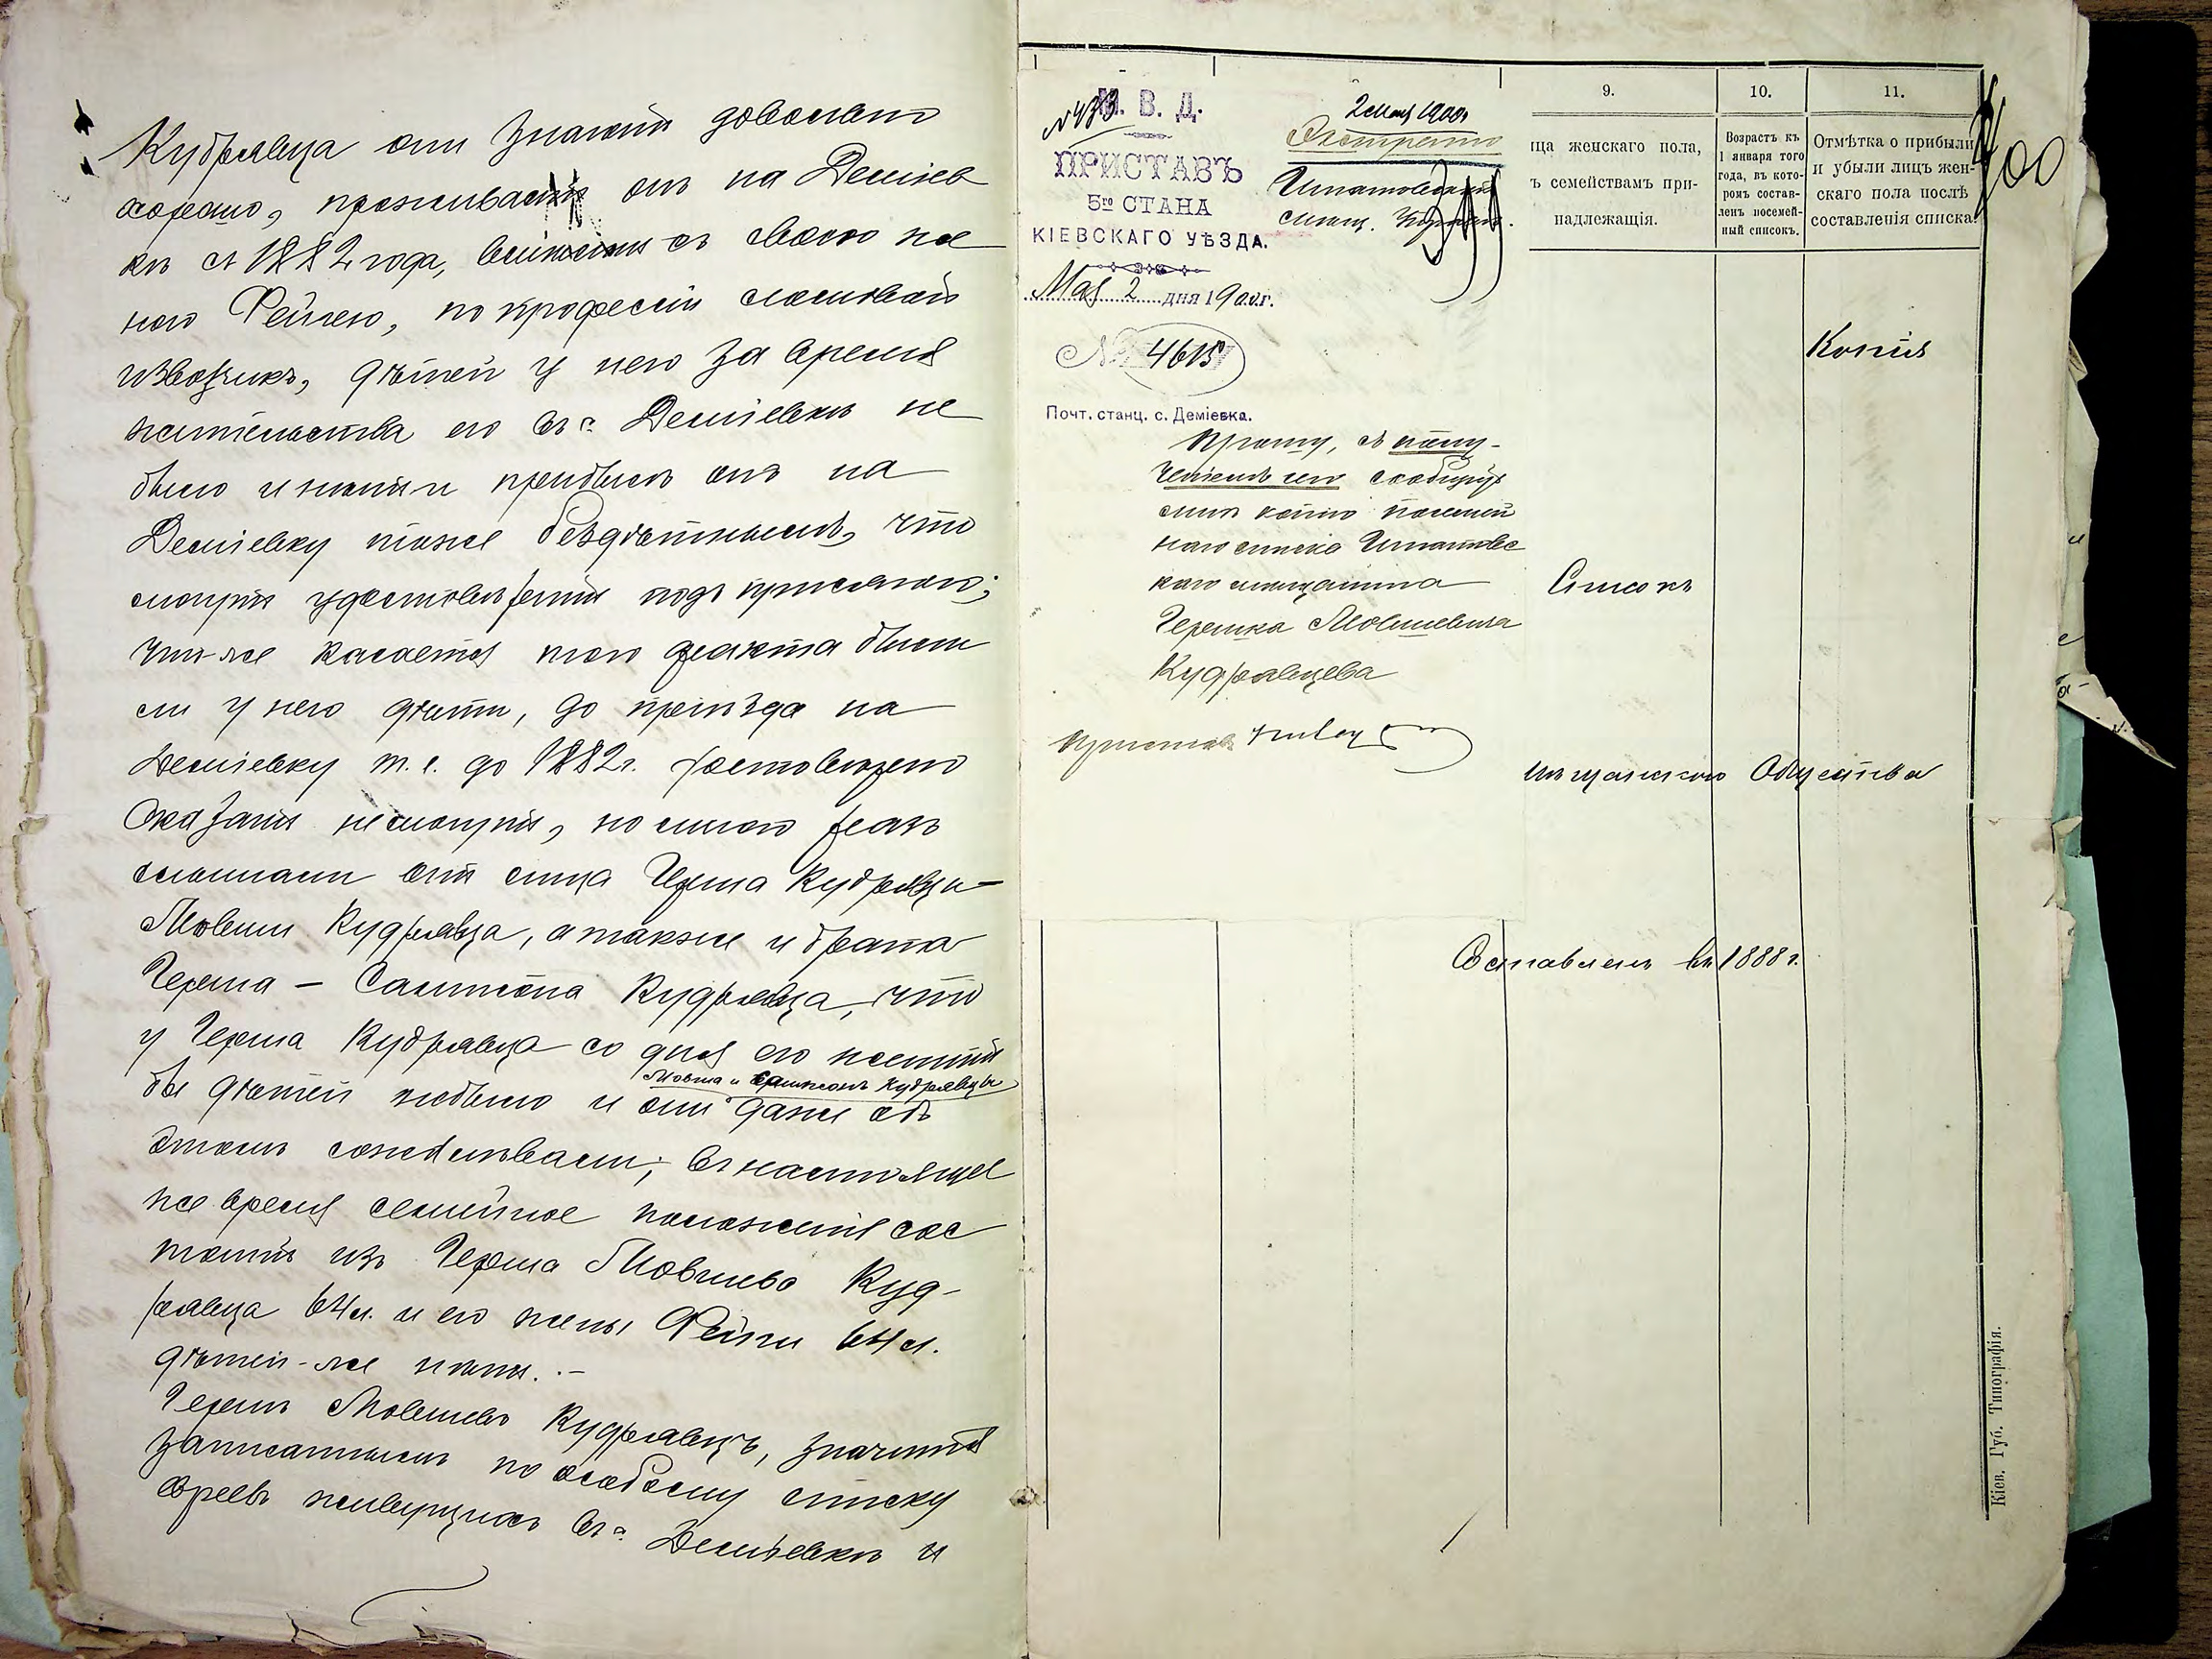 Кудравца они знаютъ довольно
хорошо, проживаетъ онъ на Деміев
кѣ съ 1882 года, вмѣстѣ съ своею же
ною Фейгею, по профессіи ломовой
извозчикъ, дѣтей у него за время
жительства его въ с. Деміевкѣ не
было и таки прибылъ онъ на
Деміевку тоже бездѣтнымъ, что
могутъ удостовѣрить подъ присягою;
что-же касается того факта были
ли у него дѣти, до пріѣзда на
Деміевку т. е. до 1882 г. достовѣрно
сказать не могутъ, но много разъ
слышали отъ отца Герша Кудравца-
Мовши Кудравца, а также и брата
Герша – Самсона Кудравца, что
у Герша Кудравца со дня его женить
Мовша и Самсонъ Кудравцы
бы дѣтей не было и они даже объ
этомъ сожалѣвали; въ настоящее
же время семейное положеніе сос
тоитъ изъ Герша Мовшева Куд-
равца 64 л. и его жены Фейги 64 л.
дѣтей-же нѣтъ. –
Гершъ Мовшевъ Кудравецъ, значится
записаннымъ по особому списку
евреевъ живущихъ въ с. Деміевкѣ и
400
М. В. Д.
ПРИСТАВЪ
5го СТАНА
КІЕВСКАГО УѢЗДА.
Мая 2 дня 1900 г.
№ 4615
Почт. станц. с. Деміевка.
2 мая 1900 г.
Игнатовской
мѣщ. Управѣ.
Прошу, съ полу-
ченіемъ сего сообщить
мнѣ копію посемей
наго списка Игнатовс
каго мѣщанина
Гершка Мовшевича
Кудравцева
Приставъ
9. 10. 11.
ща женскаго пола,
ъ семействамъ при-
надлежащія.
Возрастъ къ
1 января того
года, въ кото-
ромъ состав-
ленъ посемей-
ный списокъ.
Отмѣтка о прибыли
и убыли лицъ жен-
скаго пола послѣ
составленія списка.
Копія
Списокъ
мѣщанскаго Общества
Составленъ въ 1888 г.
Кіев. Губ. Типографія.